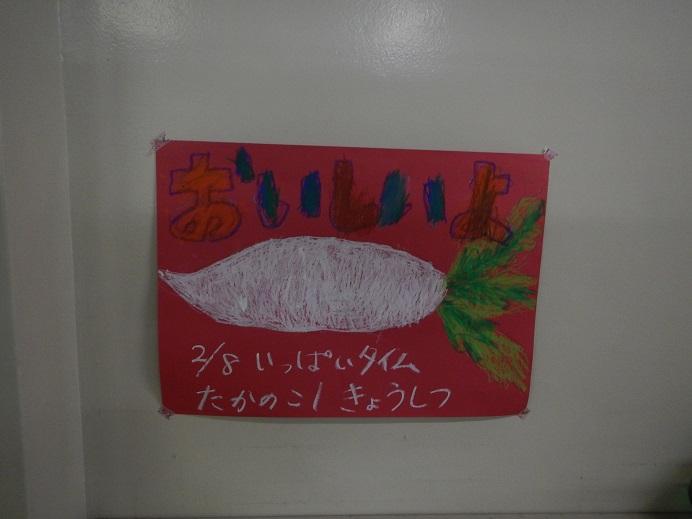 おいしいよ
2/8 いっぱいタイム
たかのこ1 きょうしつ